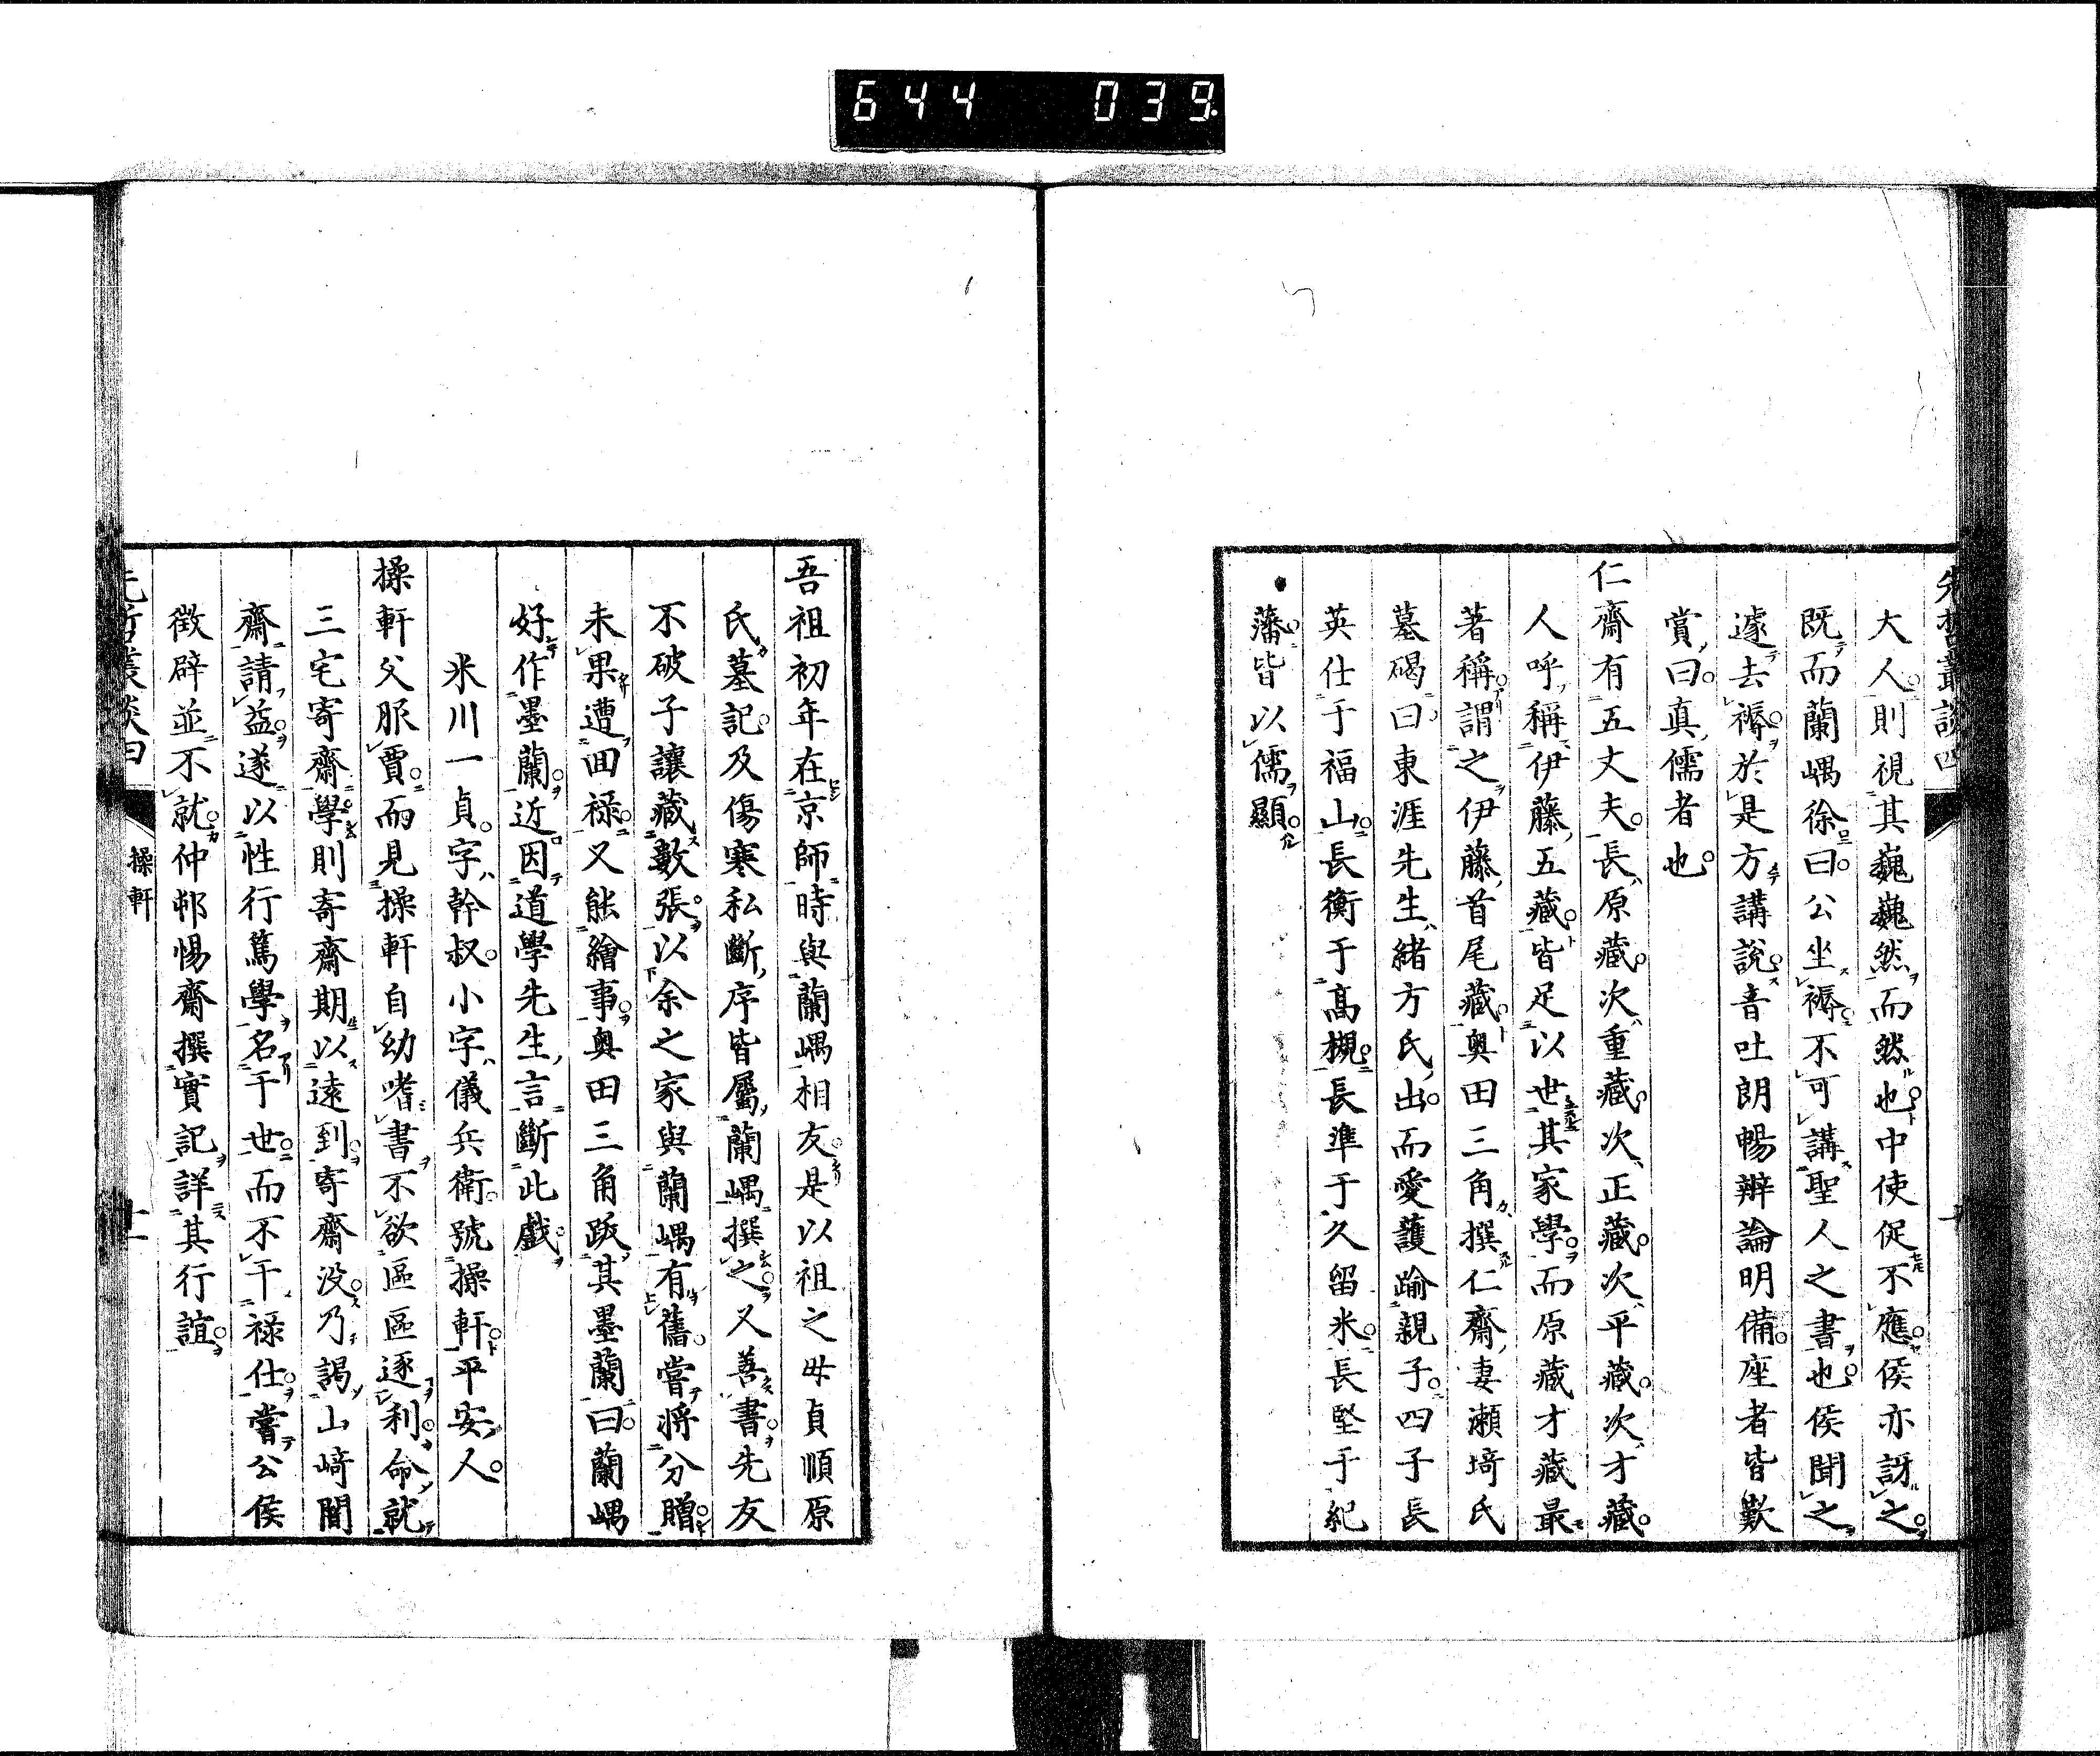 644 039
先哲叢談四
大人則視其巍巍然而然也中使促不應侯亦訝之
既而蘭嵎徐曰公坐褥不可講聖人之書也侯聞之
遽去褥於是方講說音吐朗暢辨論明備座者皆歎
賞曰真儒者也
仁齋有五丈夫長原藏次重藏次正藏次平藏次才藏
人呼稱伊藤五藏皆足以世其家學而原藏才藏最
著稱謂之伊藤首尾藏奥田三角撰仁齋妻瀨埼氏
墓碣曰東涯先生緒方氏出而愛護踰親子四子長
英仕于福山長衡于高槻長準于久留米長堅于紀
藩皆以儒顯
吾祖初年在京師時與蘭嵎相友是以祖之母貞順原
氏墓記及傷寒私斷序皆屬蘭嵎撰之又善書先友
不破子讓藏數張以余之家與蘭嵎有舊嘗將分贈
未果遭回祿又能繪事奥田三角跋其墨蘭曰蘭嵎
好作墨蘭近因道學先生言斷此戲
米川一貞字幹叔小字儀兵衛號操軒平安人
操軒父服賈而見操軒自幼嗜書不欲區區逐利命就
三宅寄齋學則寄齋期以遠到寄齋没乃謁山﨑闇
齋請益遂以性行篤學名于世而不干祿仕嘗公侯
徵辟並不就仲邨惕齋撰實記詳其行誼
先哲叢談四
操軒